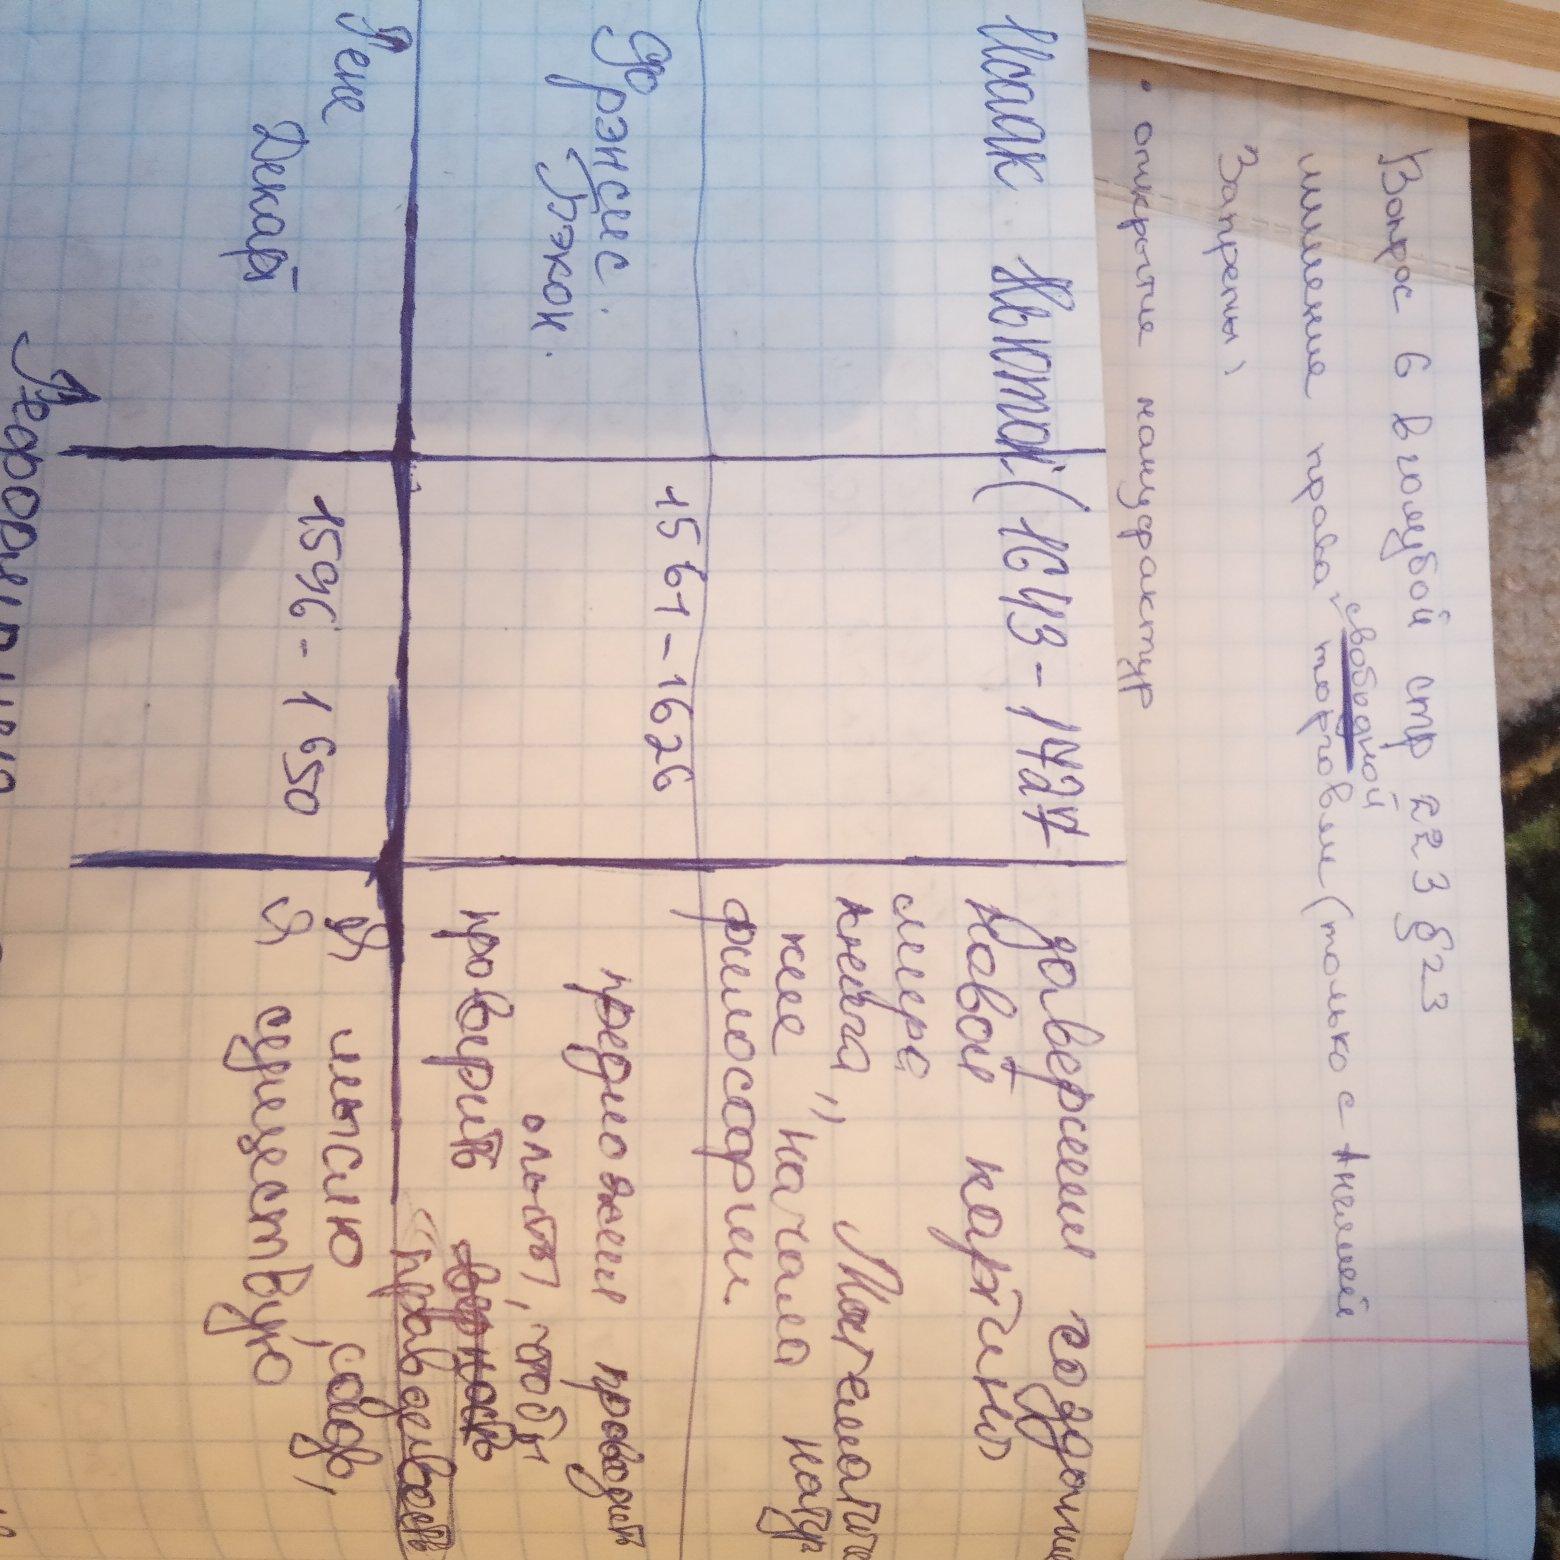 Вопрос 6 в голубой стр 223 § 23
лишение права свободной торговли (только с Англией
Запреты,
• открытие мануфактур
Исаак Ньютон (1643-1727
завершил создание
новой картины
мира
книга „Математиче
кие начала натур
философии.
Фрэнсис Бэкон.
1561-1626
предложил проводить
опыты, чтобы
проверить верность
правдивость
Рене Декарт
1596-1650
Я мыслю, следо,
я существую